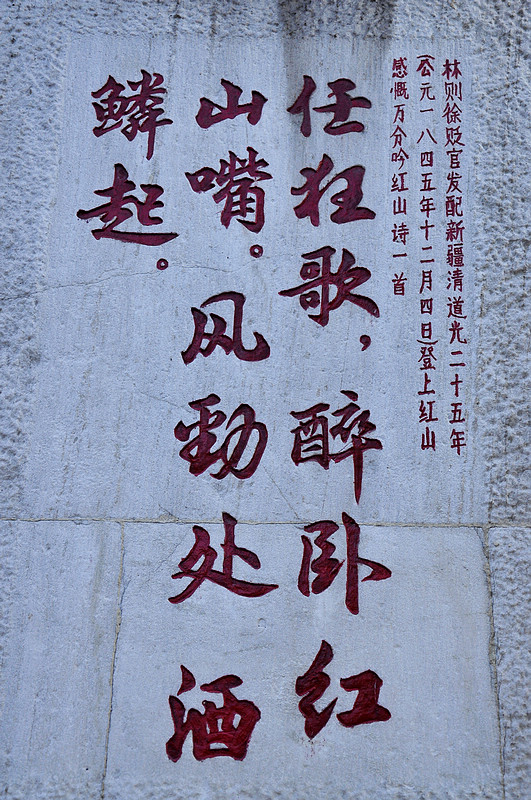 林则徐贬官发配新疆清道光二十五年
(公元一八四五年十二月四日)登上红山
感慨万分吟红山诗一首
任狂歌，醉卧红
山嘴。风劲处酒
鳞起。